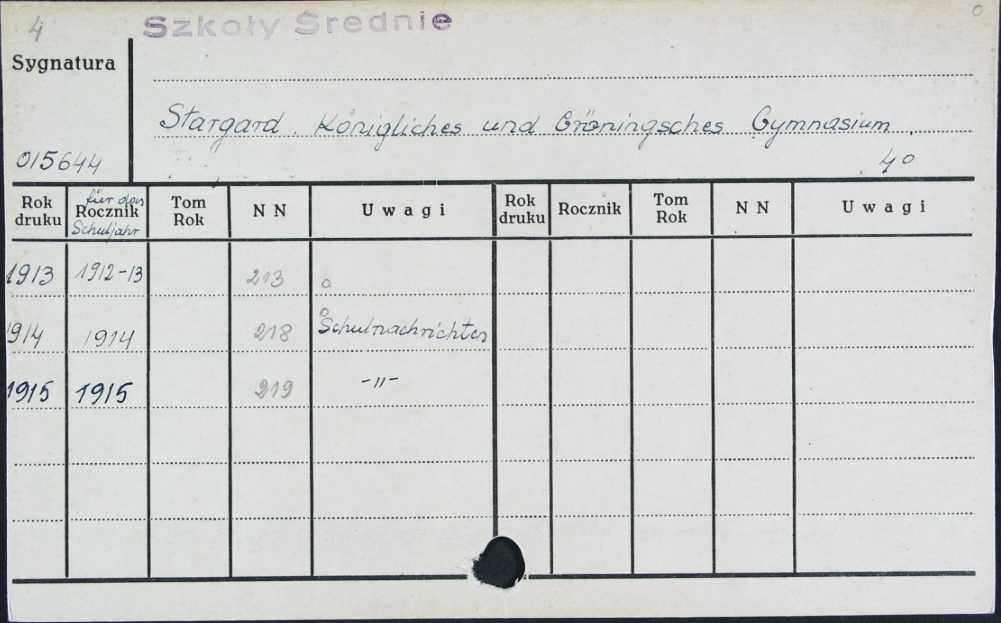 4 Szkoły Średnie
Sygnatura
Stargard. Königliches und Gröningsches Gymnasium.
015644 4°
Rok druku für das Rocznik Schuljahr Tom Rok N N Uwagi Rok druku Rocznik Tom Rok N N Uwagi
1913 1912-13 213
1914 1914 218 Schulnachrichten
1915 1915 219 -"-